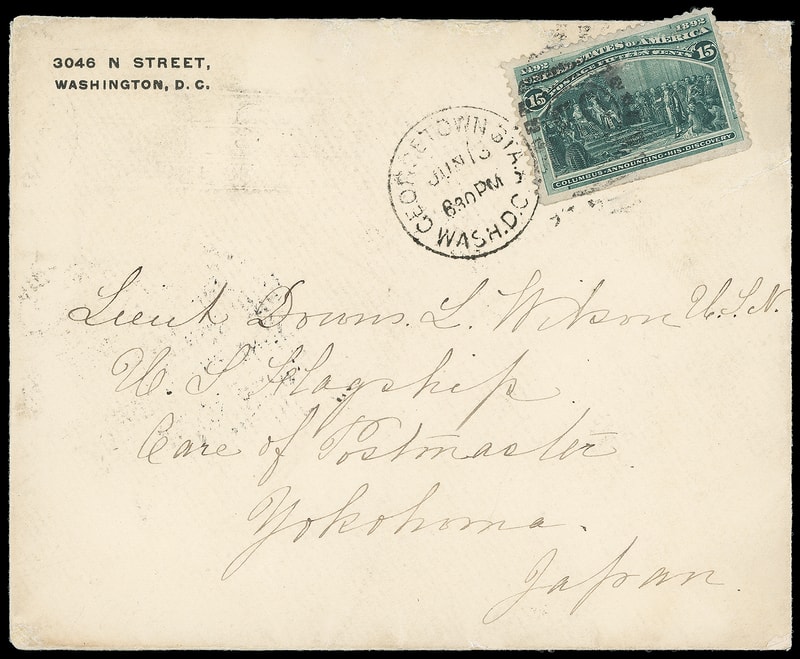 3046 N STREET,
WASHINGTON, D. C.
1492 1892
UNITED STATES OF AMERICA
POSTAGE FIFTEEN CENTS
15 15
COLUMBUS ANNOUNCING HIS DISCOVERY
GEORGETOWN STA.
JUN 13
630PM
WASH.D.C.
Lieut Downs. L. Wilson U.S.N.
U. S. Flagship
Care of Postmaster
Yokohoma.
Japan.